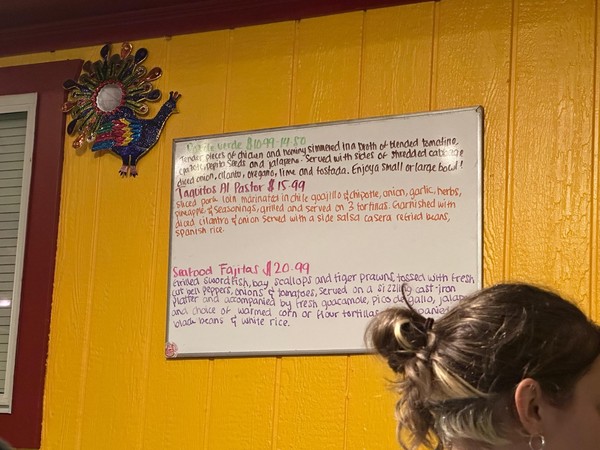 Pozole Verde $10.99-14.50
Tender pieces of chicken and hominy simmered in a broth of blended tomatillo,
epazote, pepita seeds and jalapeno. Served with sides of shredded cabbage
diced onion, cilantro, oregano, lime and tostada. Enjoy a small or large bowl!
Taquitos Al Pastor $15.99
Sliced pork loin marinated in chile guajillo & chipotle, onion, garlic, herbs,
pineapple & seasonings, grilled and served on 3 tortillas. Garnished with
diced cilantro & onion served with a side salsa casera refried beans,
spanish rice.
Seafood Fajitas $20.99
Grilled swordfish, bay scallops and tiger prawns tossed with fresh
cut bell peppers, onions & tomatoes, served on a sizzling cast-iron
platter and accompanied by fresh guacamole, pico de gallo, jalap
and choice of warmed corn or flour tortillas
black beans & white rice.